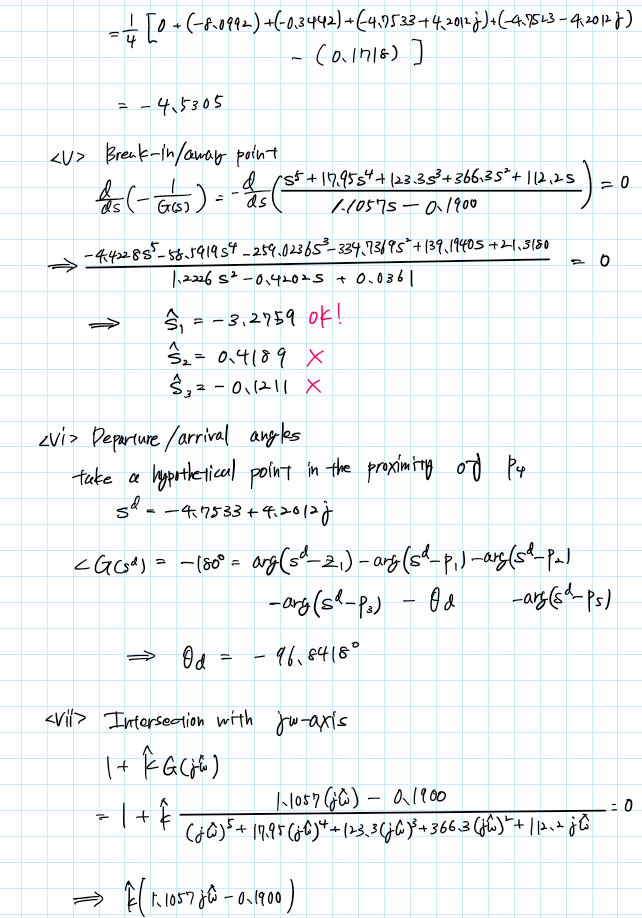 = 1/4 [0 + (-8.0992) + (-0.3442) + (-4.7533 + 4.2012j) + (-4.7523 - 4.2012j)
- (0.1718) ]
= -4.5305
<V> Break-in/away point
d/ds (- 1/G(s)) = - d/ds ( (s^5 + 17.95s^4 + 123.3s^3 + 366.3s^2 + 112.2s) / (1.1057s - 0.1900) ) = 0
⇒ (-4.4228s^5 - 58.5919s^4 - 259.0236s^3 - 334.7369s^2 + 139.1940s + 21.3180) / (1.2226s^2 - 0.4202s + 0.0361) = 0
⇒ ŝ₁ = -3.2759 ok!
ŝ₂ = 0.4189 ×
ŝ₃ = -0.1211 ×
<Vi> Departure/arrival angles
take a hypothetical point in the proximity of p₄
s^d = -4.7533 + 4.2012j
∠G(s^d) = -180° = arg(s^d - z₁) - arg(s^d - p₁) - arg(s^d - p₂)
- arg(s^d - p₃) - θd - arg(s^d - p₅)
⇒ θd = -96.8418°
<Vii> Intersection with jw-axis
1 + k̂ G(jω̂)
= 1 + k̂ (1.1057(jω̂) - 0.1900) / ((jω̂)^5 + 17.95(jω̂)^4 + 123.3(jω̂)^3 + 366.3(jω̂)^2 + 112.2jω̂) = 0
⇒ k̂(1.1057jω̂ - 0.1900)